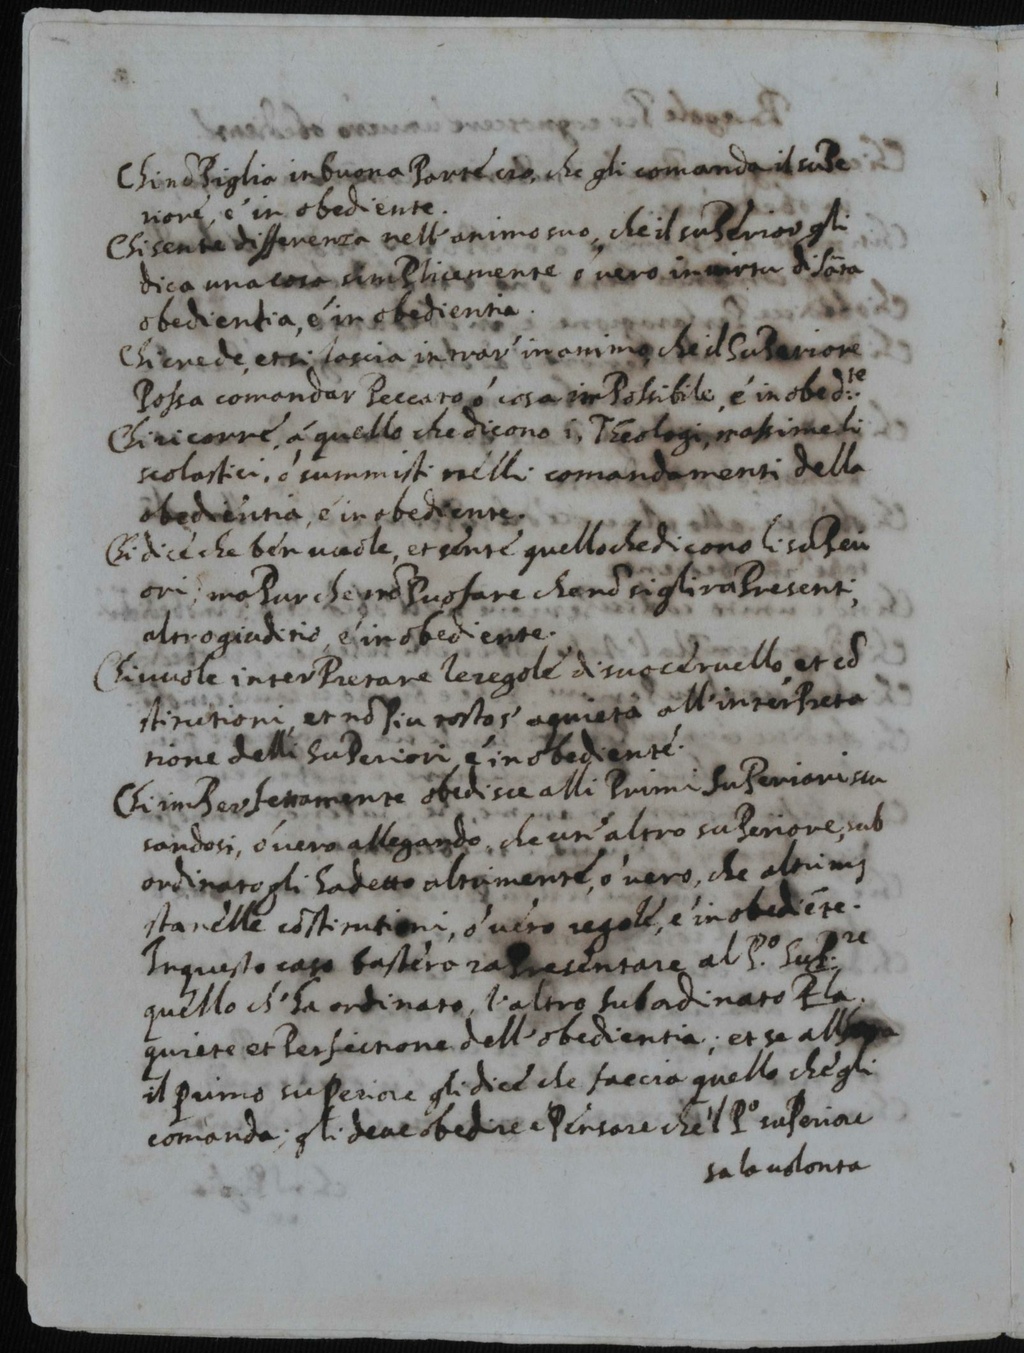 Chi nõ Piglia in buona Parte ciò, che gli comanda il suPe
riore, é in obediente.
Chi sente differenza nell'animo suo, che il suPerior gli
dica una cosa simPlicemente ó uero in uirtu di Sãta
obedientia, é in obedientia.
Chi crede, et si lascia intrar' in animo, che il SuPeriore
Possa comandar Peccato ó cosa imPossibile, é in obed:te
Chi ricorre, á quello che dicono i, Theologi, massime li
scolastici, ó summisti nelli comandamenti della
obedientia, é in obediente.
Chi dice che ben uede, et sente quello che dicono li suPeri
ori, ma Pur che nõ Puo fare che nõ si gli raPresenti,
altro giuditio, é in obediente.
Chi uuole interPretare le regole di suo ceruello, et cõ
stitutioni, et nõ Piu tosto s' aquieta all'interPreta
tione delli SuPeriori, é in obediente.
Chi imPerfettamente obedisce alli Primi SuPeriori scu
sandosi, ó uero allegando, che un' altro suPeriore, sub
ordinato gli ha detto altrimente, ó uero, che altrim
sta nelle cõstitutioni, ó uero regole, é in obediẽte.
In questo caso bastera raPresentare al P.º SuP:re
quello ch' ha ordinato, l'altro subordinato P la
quiete et Perfectione dell'obedientia; et se all
il primo suPeriore gli dice che faccia quello che gli
comanda; gli deue obedire e Pensare che 'l Pº suPeriore
sa la uolonta